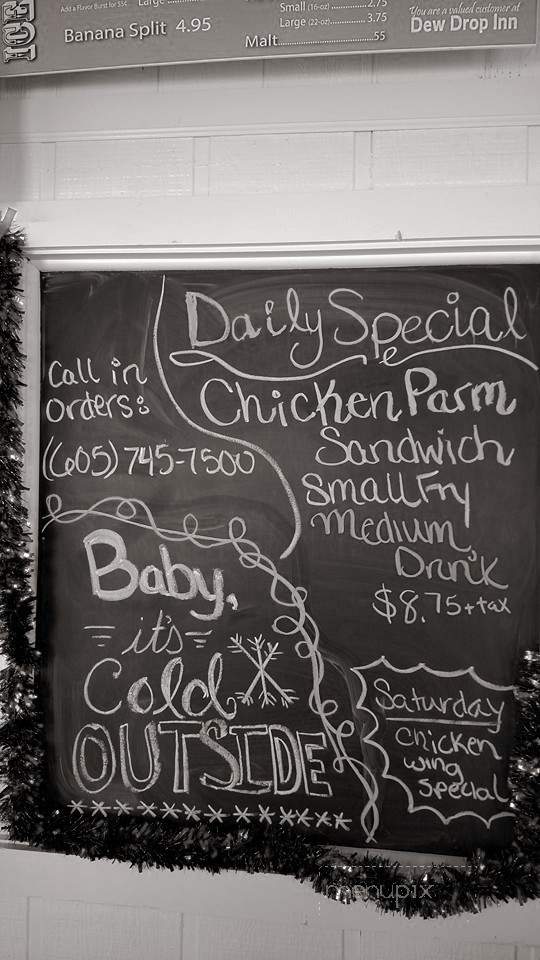 ICE
Add a Flavor Burst for 55¢
Large
Banana Split 4.95
Small (16-oz) 2.75
Large (22-oz) 3.75
Malt .55
You are a valued customer at
Dew Drop Inn
Daily Special
Chicken Parm
Sandwich
Small Fry
Medium
Drink
$8.75 + tax
Call in
orders:
(605) 745-7500
Baby,
it's
Cold
OUTSIDE
Saturday
Chicken
wing
special
menupix